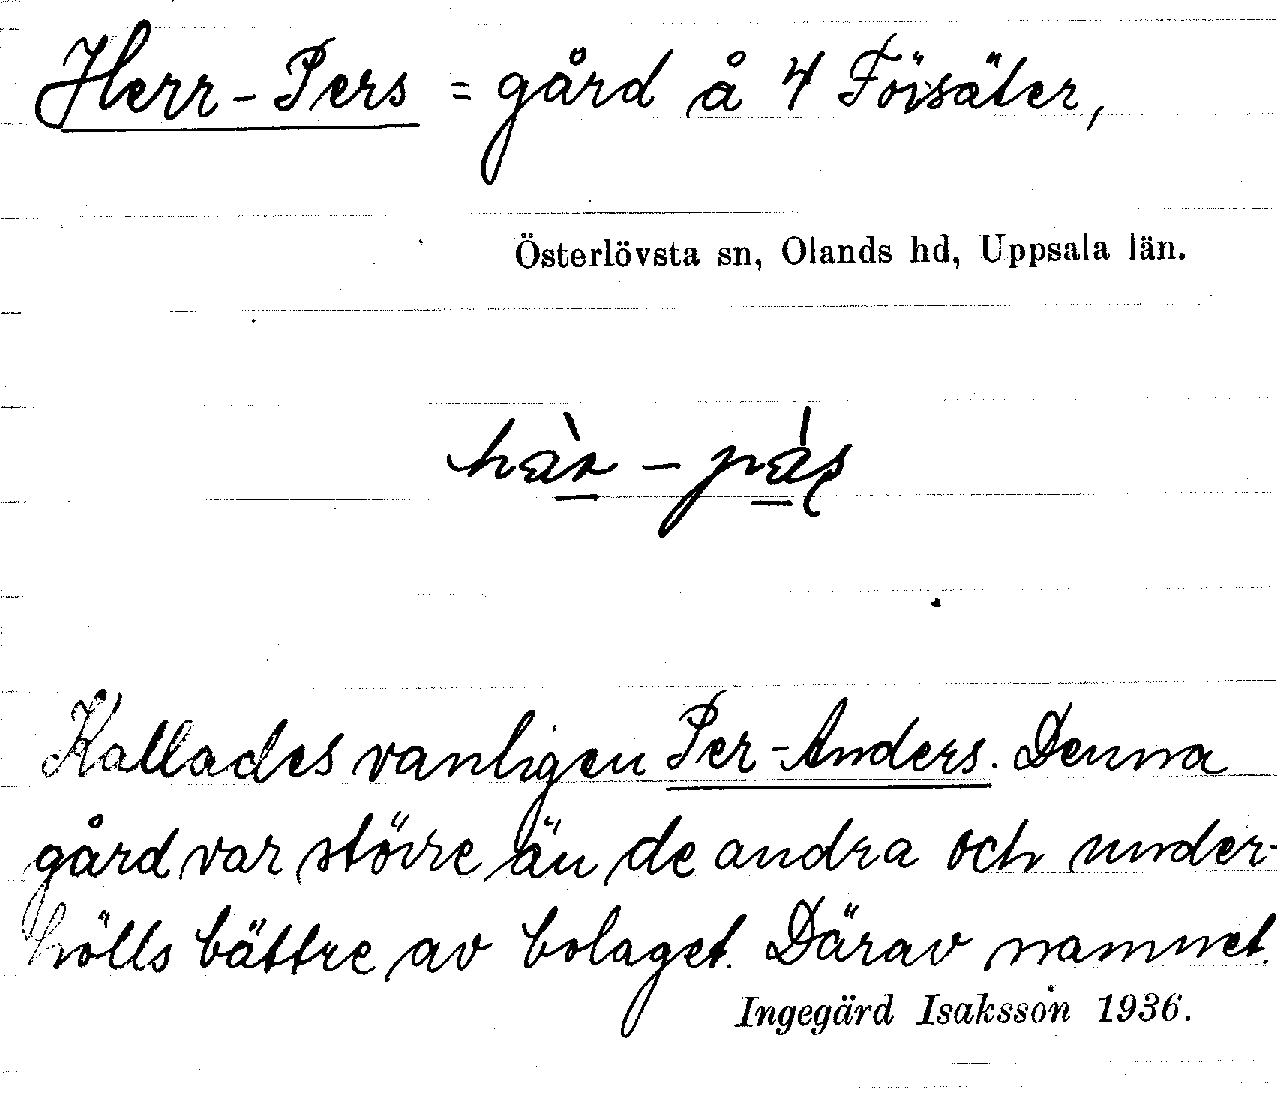 Herr-Pers = gård å 4 Försäter,
Österlövsta sn, Olands hd, Uppsala län.
Kallades vanligen Per-Anders. Denna
gård var större än de andra och under-
hölls bättre av bolaget. Därav namnet.
Ingegärd Isaksson 1936.